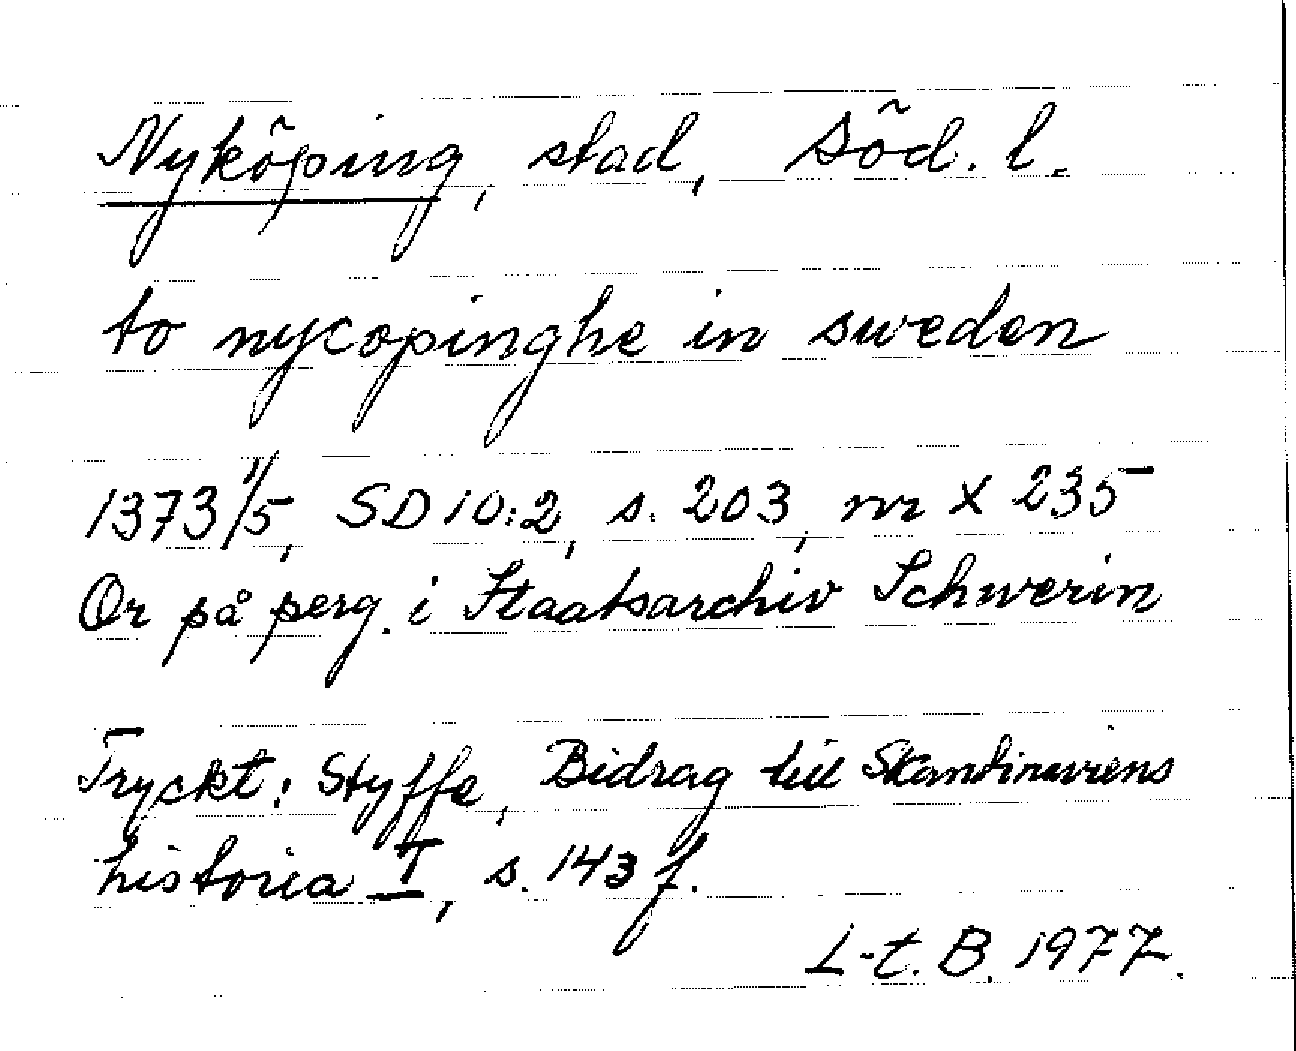 Nyköping, stad, Söd. l.
to nycopinghe in sweden
1373 1/5, SD 10:2, s. 203, nr X 235
Or på perg. i Staatsarchiv Schwerin
Tryckt: Styffe, Bidrag till Skandinaviens
historia I, s. 143 f.
L-t. B. 1977.